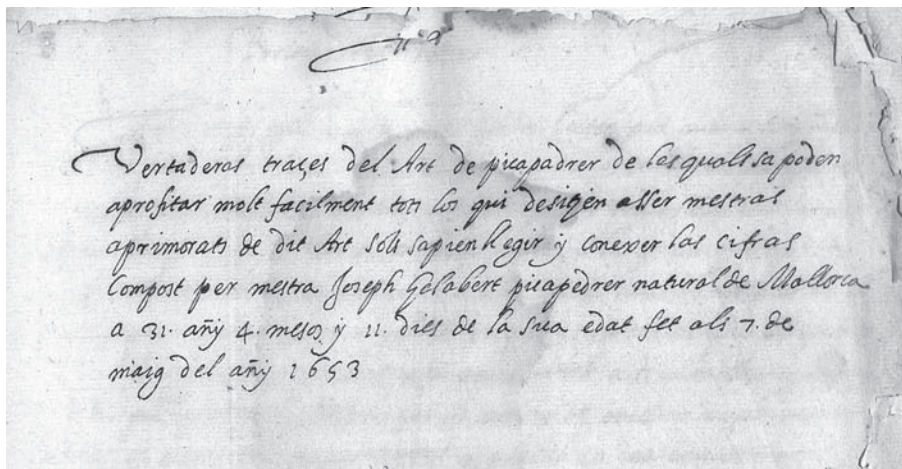 Vertaderas traçes del Art de picapadrer de las quals sa poden
aprofitar molt facilment tots los qui desitjen esser mestras
aprimorats de dit Art sols sapien llegir y conexer las cifras
Compost per mestra Joseph Gelabert picapedrer natural de Mallorca
a 31. añy 4. mesos y 11. dies de la sua edat fet als 7. de
maig del añy 1653